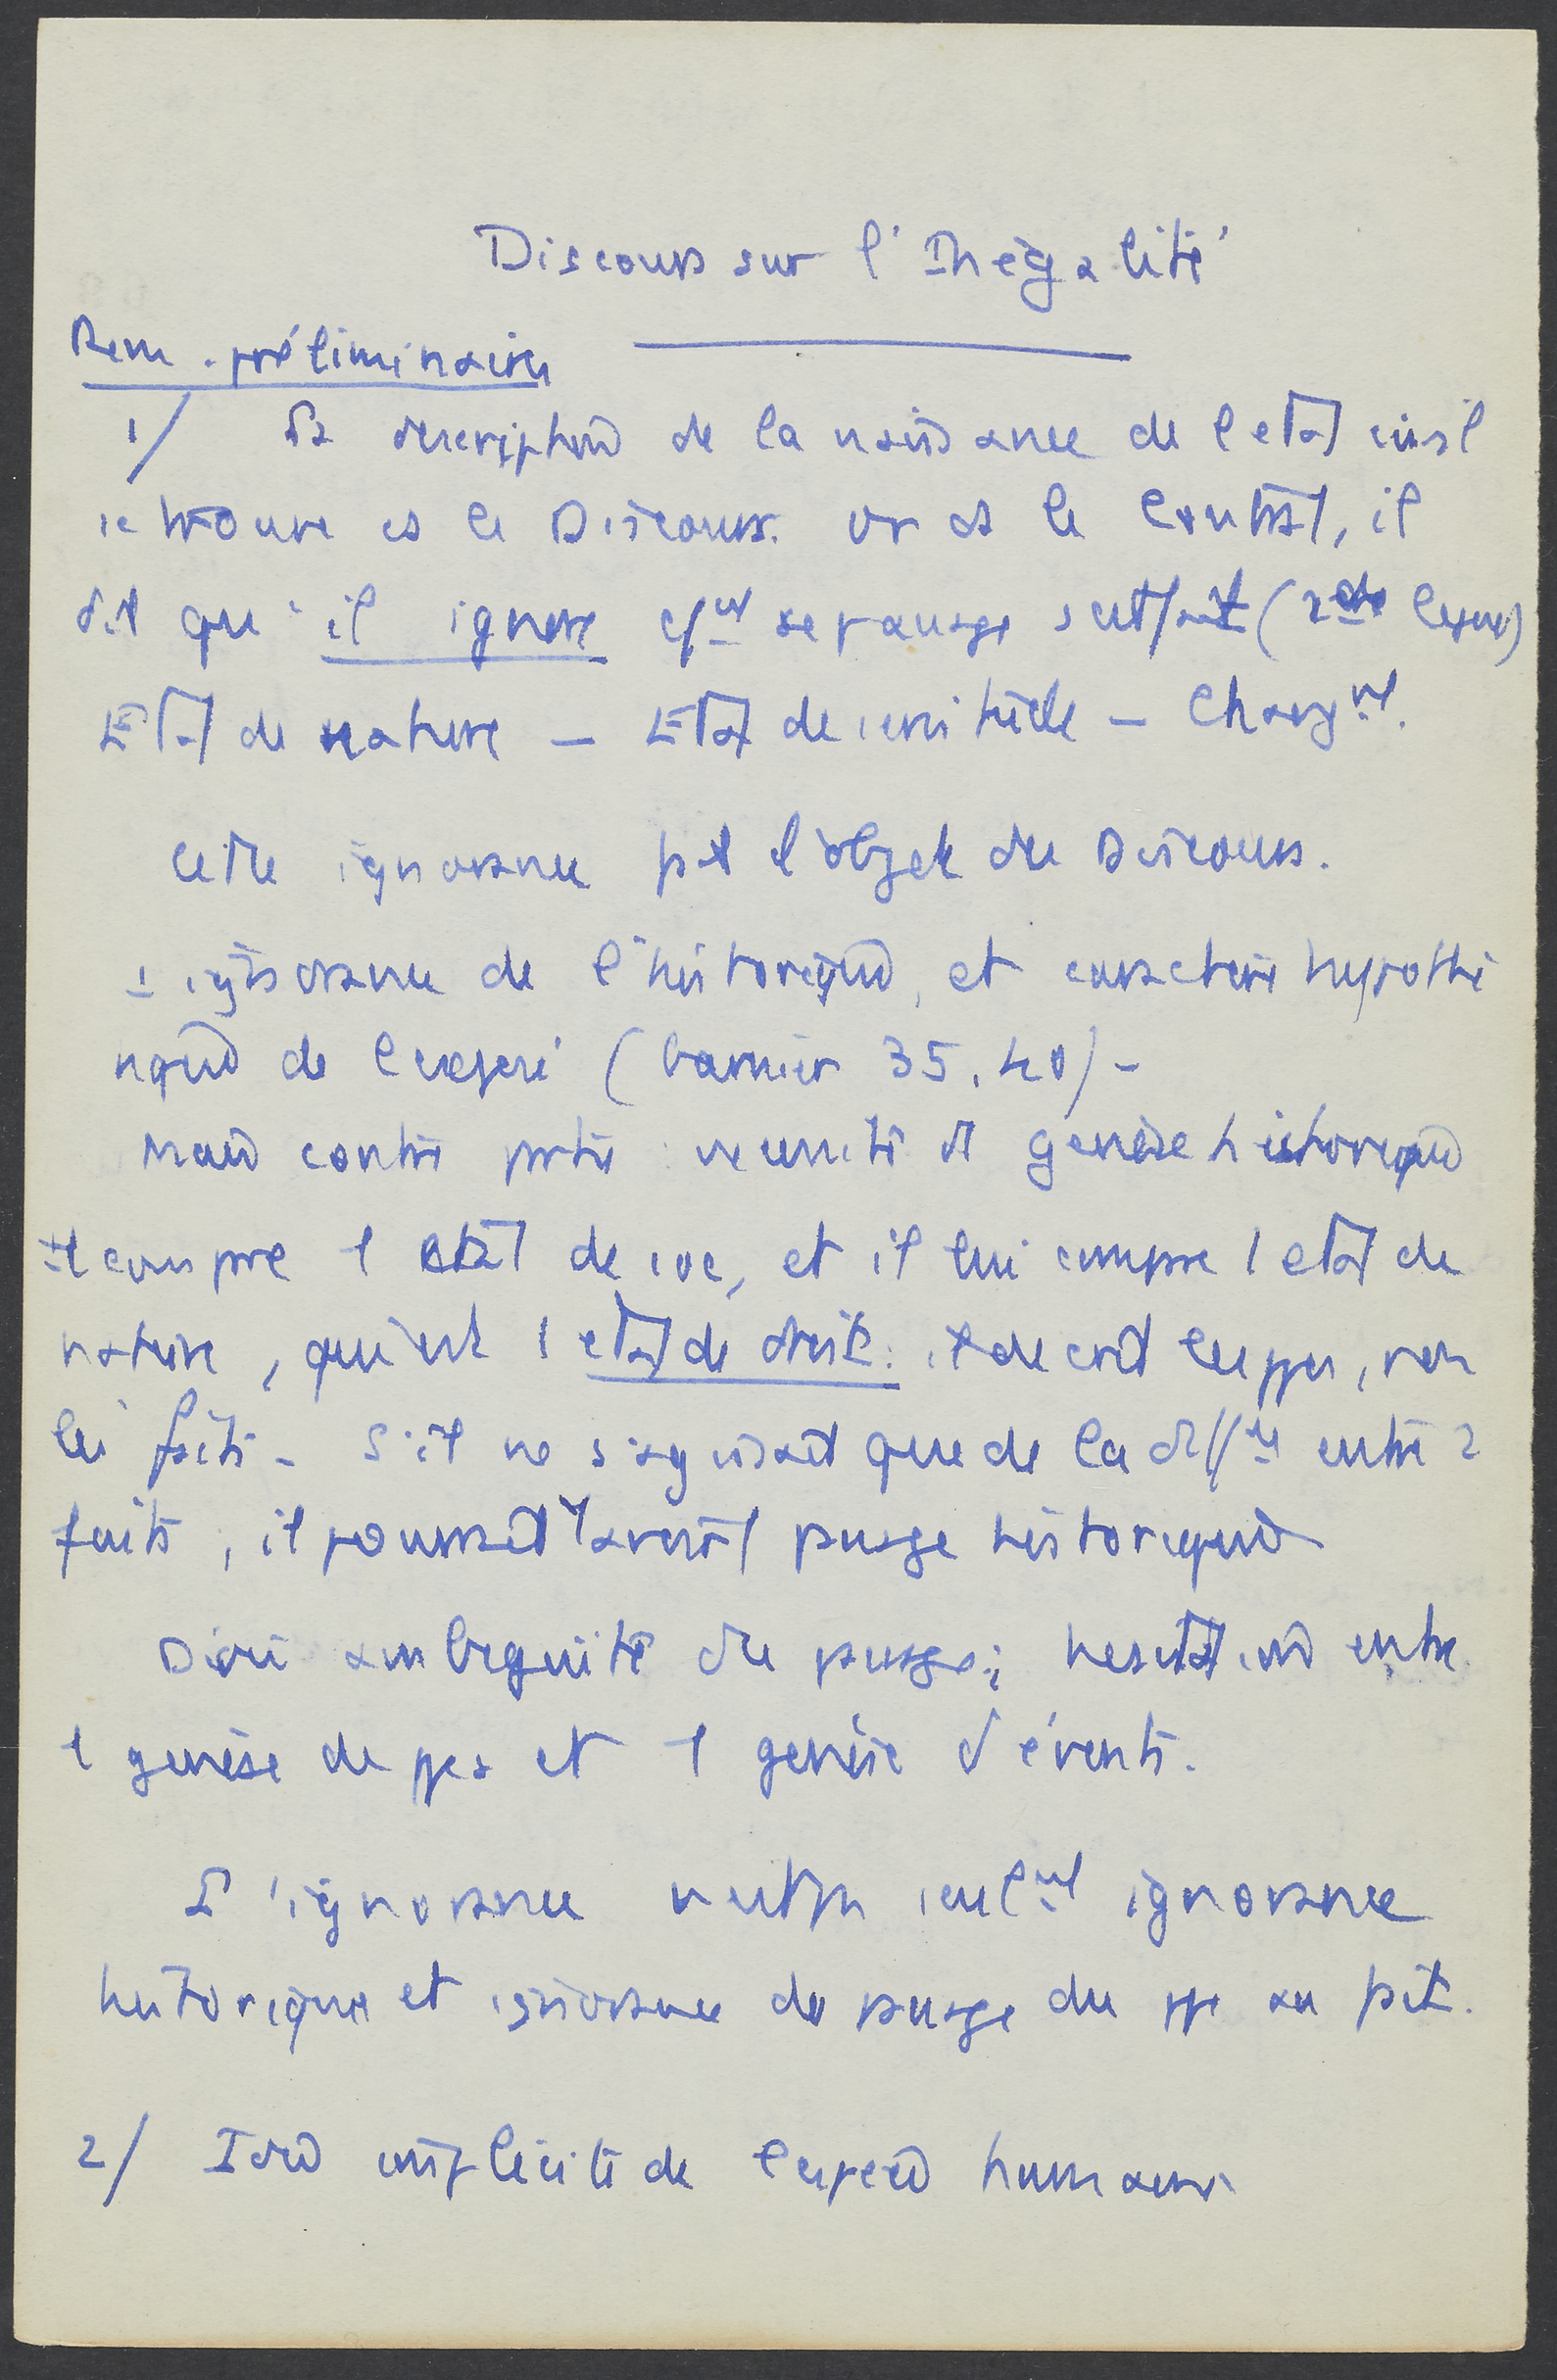 Discours sur l'Inégalité
Rem. préliminaires
1/ La description de la naissance de l etat civil
se trouve ds le Discours. Or ds le Contrat, il
dit qu'il ignore cmt ce passage s'est fait (2de leçon)
Etat de nature — Etat de servitude — Changmt.
Cette ignorance fut l'objet du Discours.
- ignorance de l'historique, et caractère hypothé
tique de l'exposé (Garnier 35.40) -
Mais contre partie : nécessité d genèse historique
Il compare l état de soc, et il lui compare l etat de
nature, qui est l etat de droit. Il decrit les ppes, non
les faits - S'il ne s'agissait que de la diffce entre 2
faits, il pourrait y avoir passage historique
D'où ambiguité du passage ; hesitation entre
1 genèse de ppes et 1 genèse d'évents.
L'ignorance n'est pas seulmt ignorance
historique et ignorance du passage du ppe au fait.
2/ Idée implicite de l'espèce humaine